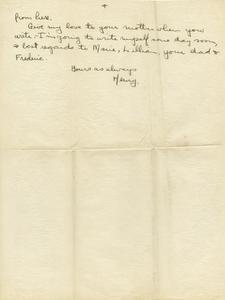 4
from here.
Give my love to your mother when you
write - I'm going to write myself some day soon,
& best regards to Marie, Lillian, your dad &
Frederic.
Yours as always
Henry.